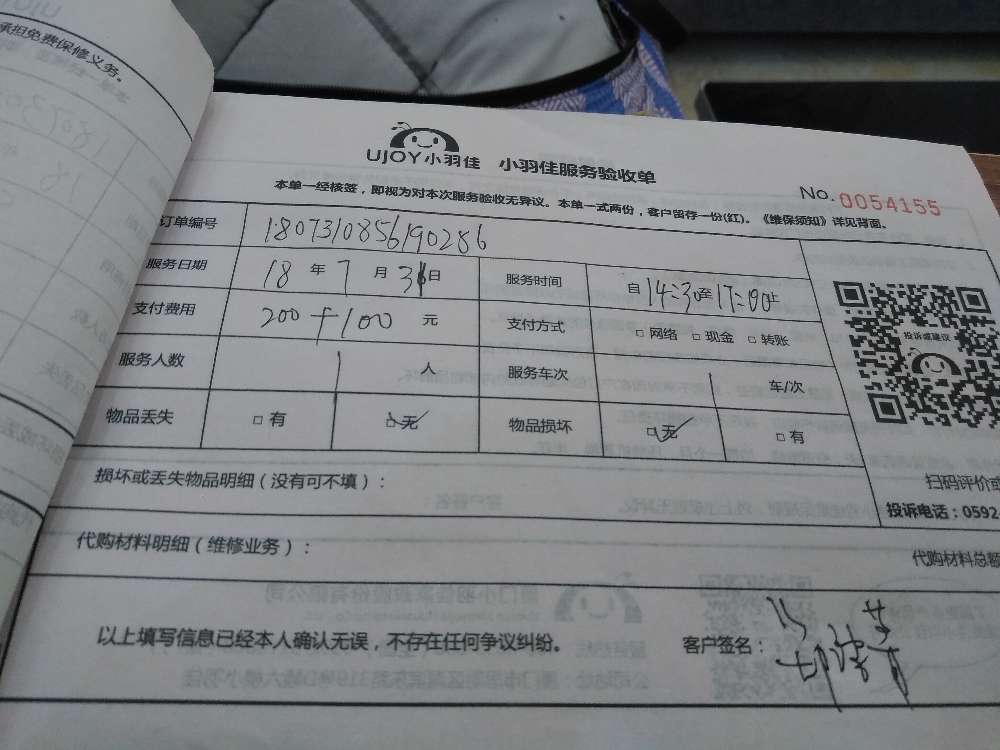 承担免费保修义务。
UJOY小羽佳 小羽佳服务验收单
No. 0054155
本单一经核签，即视为对本次服务验收无异议。本单一式两份，客户留存一份(红)。《维保须知》详见背面。
订单编号 180731085690286
服务日期 18 年 7 月 31 日 服务时间 自 14:30 至 17:00 止
支付费用 200+100 元 支付方式 □ 网络 □ 现金 □ 转账
投诉或建议
服务人数 1 人 服务车次 1 车/次
物品丢失 □ 有 □ 无 物品损坏 □ 无 □ 有
损坏或丢失物品明细（没有可不填）：
扫码评价或
投诉电话：0592-
代购材料明细（维修业务）：
代购材料总额
以上填写信息已经本人确认无误，不存在任何争议纠纷。
客户签名：